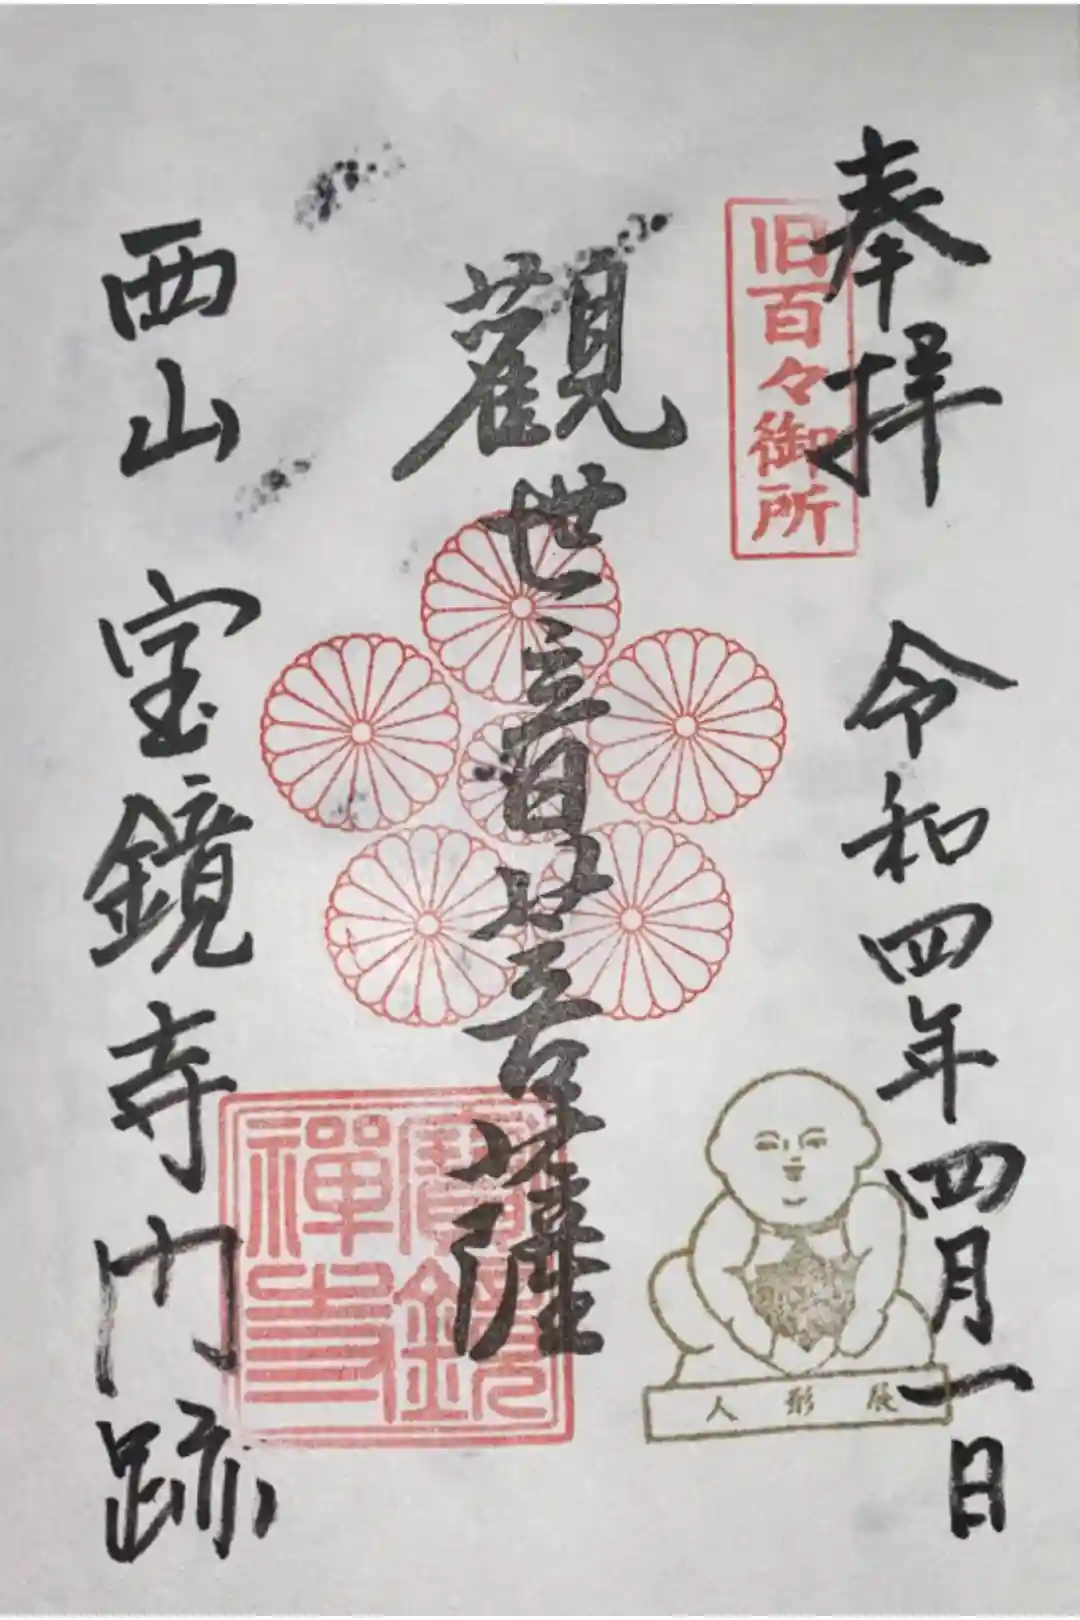 奉拝
令和四年四月一日
旧百々御所
觀世音菩薩
寶鏡
禅寺
人形展
西山
宝鏡寺門跡